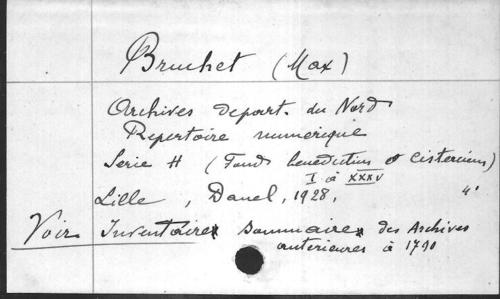 Bruchet (Max)
Archives départ. du Nord
Répertoire numérique
Série H (Fonds bénédictins et cisterciens)
I à XXXV
Lille, Danel, 1928, 4°
Voir Inventaires sommaires des Archives
antérieures à 1790